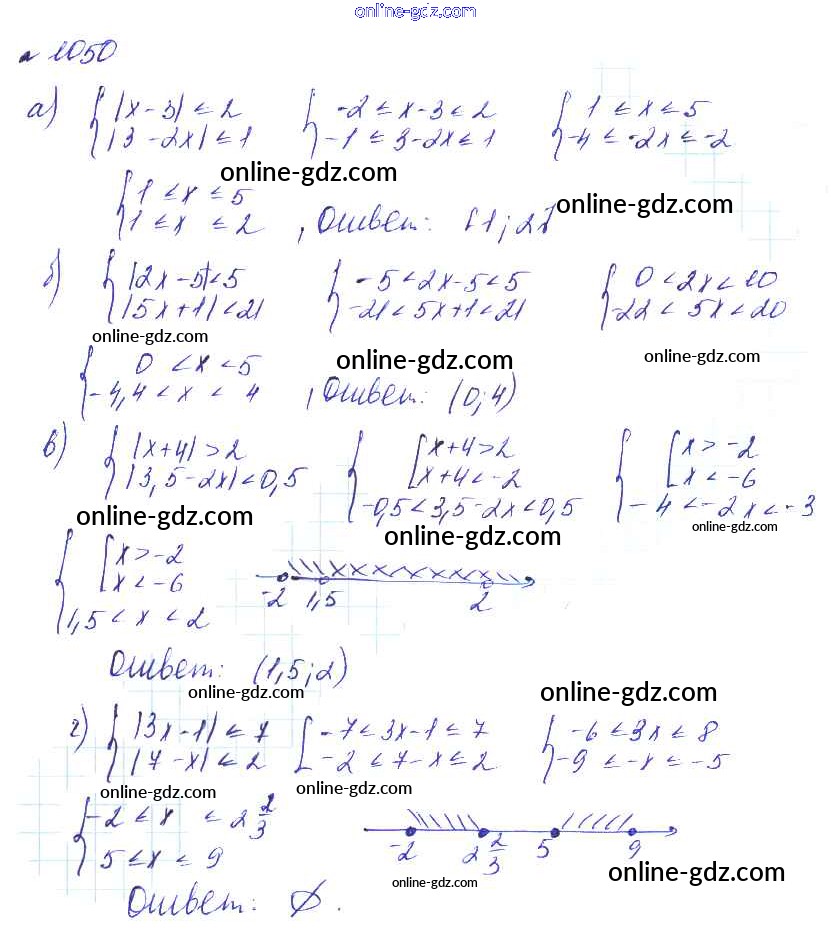 online-gdz.com
№ 1050
а) { |x-3| ≤ 2 { -2 ≤ x-3 ≤ 2 { 1 ≤ x ≤ 5
|3-2x| ≤ 1 -1 ≤ 3-2x ≤ 1 -4 ≤ -2x ≤ -2
online-gdz.com
{ 1 ≤ x ≤ 5 online-gdz.com
1 ≤ x ≤ 2 , Ответ: [1; 2]
б) { |2x-5| < 5 { -5 < 2x-5 < 5 { 0 < 2x < 10
|5x+1| < 21 -21 < 5x+1 < 21 -22 < 5x < 20
online-gdz.com online-gdz.com online-gdz.com
{ 0 < x < 5
-4,4 < x < 4 , Ответ: (0; 4)
в) { |x+4| > 2 { [ x+4 > 2 { [ x > -2
|3,5-2x| < 0,5 x+4 < -2 x < -6
-0,5 < 3,5-2x < 0,5 -4 < -2x < -3
online-gdz.com online-gdz.com online-gdz.com
{ [ x > -2
x < -6
1,5 < x < 2 -2 1,5 2
Ответ: (1,5; 2)
online-gdz.com online-gdz.com
г) { |3x-1| ≤ 7 [ -7 ≤ 3x-1 ≤ 7 { -6 ≤ 3x ≤ 8
|7-x| ≤ 2 -2 ≤ 7-x ≤ 2 -9 ≤ -x ≤ -5
online-gdz.com online-gdz.com
{ -2 ≤ x ≤ 2 2/3
5 ≤ x ≤ 9 -2 2 2/3 5 9
online-gdz.com online-gdz.com
Ответ: ∅.